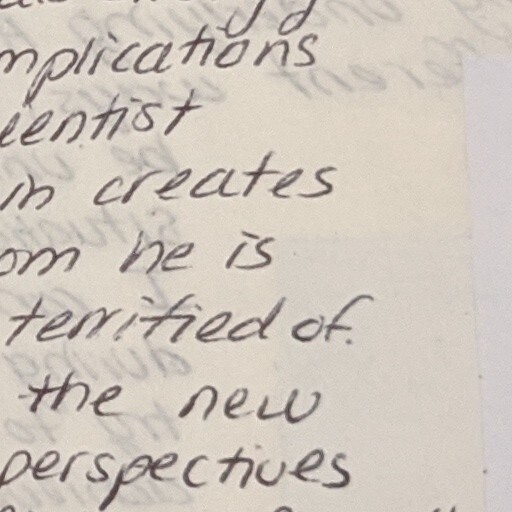 mplications
ientist
in creates
om he is
terrified of.
the new
perspectives